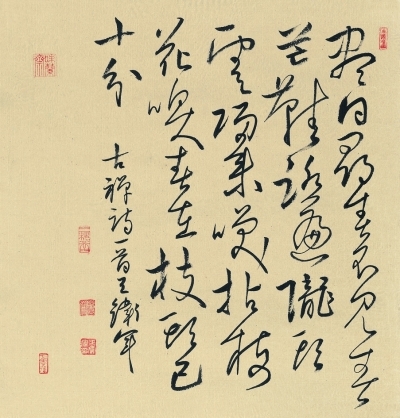 盡日尋春不見春
芒鞋踏遍隴頭
雲歸來笑拈梅
花嗅春在枝頭已
十分
古禪詩一首王衛軍